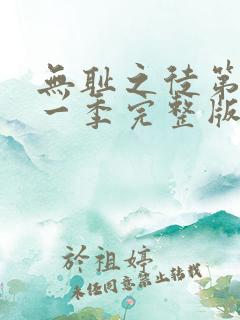 無耻之徒第
一季完整版
於祖婷
未经同意禁止转载